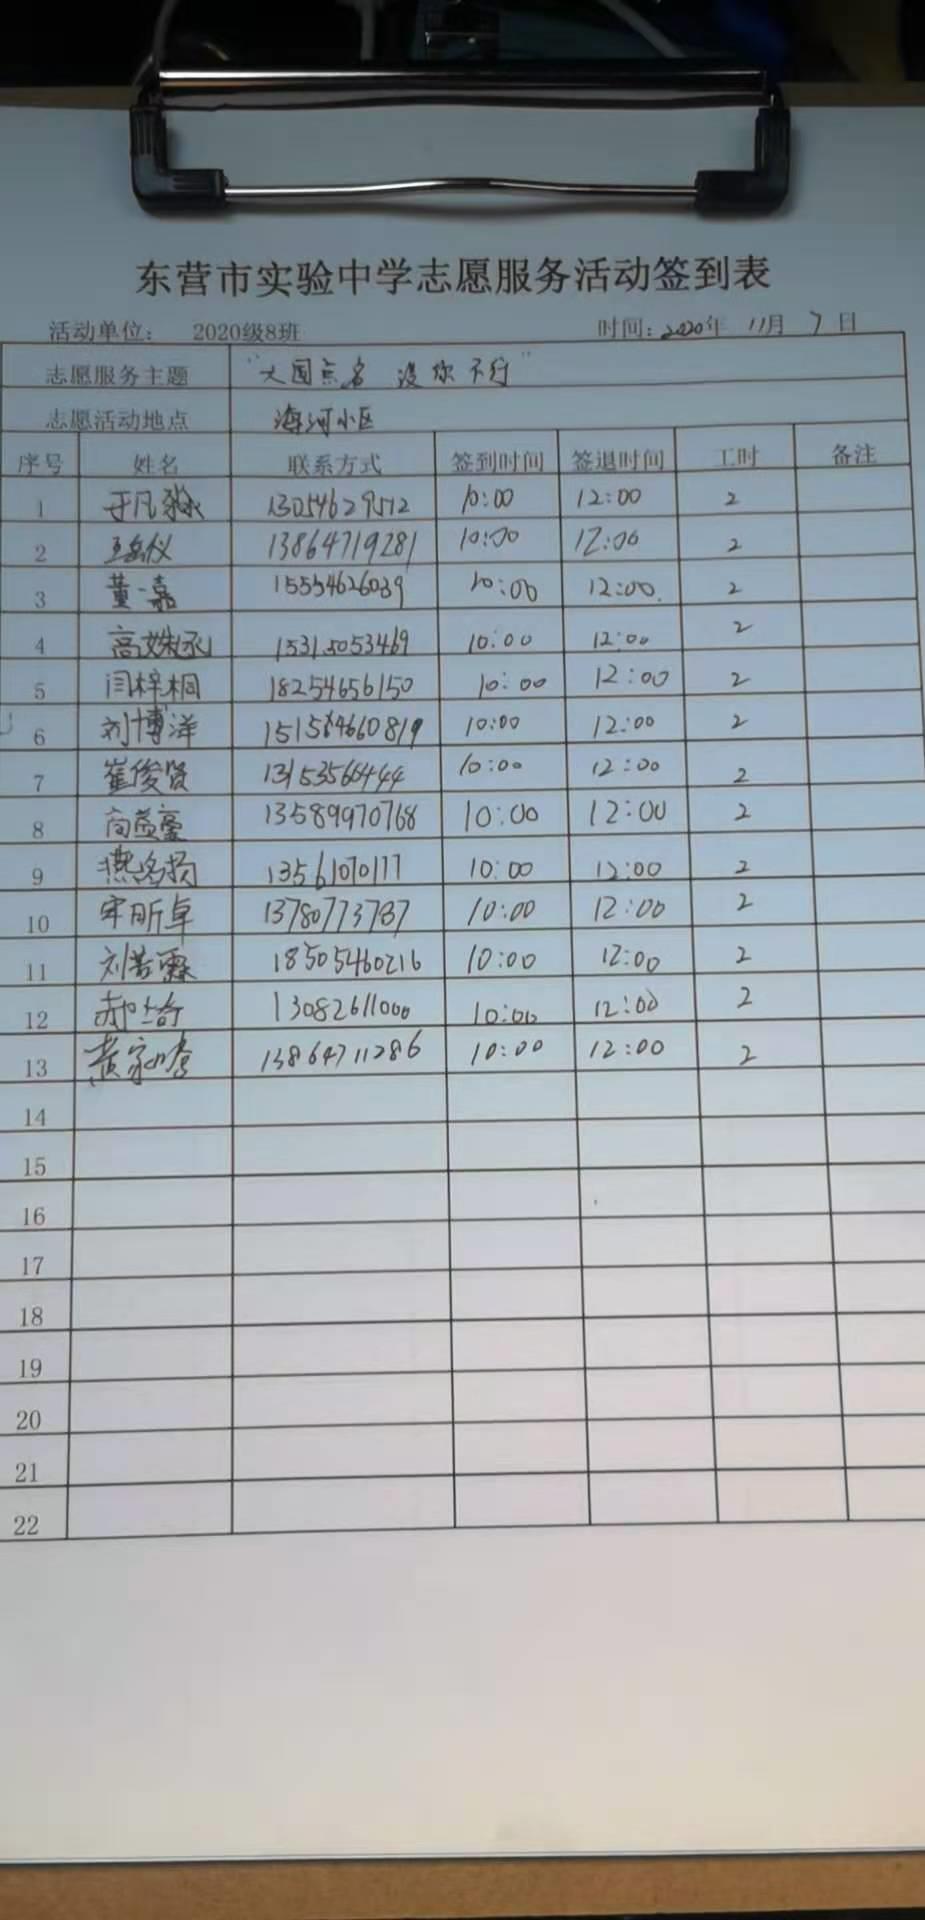 东营市实验中学志愿服务活动签到表
活动单位： 2020级8班 时间：2020年 11月 7日
志愿服务主题 "大国点名 没你不行"
志愿活动地点 海河小区
序号 姓名 联系方式 签到时间 签退时间 工时 备注
1 于凡 13054629512 10:00 12:00 2
2 13864719281 10:00 12:00 2
3 董一嘉 15554626039 10:00 12:00. 2
4 高姝丞 15315053469 10:00 12:00 2
5 闫梓桐 18254656150 10:00 12:00 2
6 刘博洋 10:00 12:00 2
7 崔俊贤 13153566444 10:00 12:00 2
8 尚益豪 13589970768 10:00 12:00 2
9 燕 13561070177 10:00 12:00 2
10 牢昕卓 13780773787 10:00 12:00 2
11 刘若霖 18505460216 10:00 12:00 2
12 郝 13082611000 10:00 12:00 2
13 黄家 13864711286 10:00 12:00 2
14
15
16
17
18
19
20
21
22